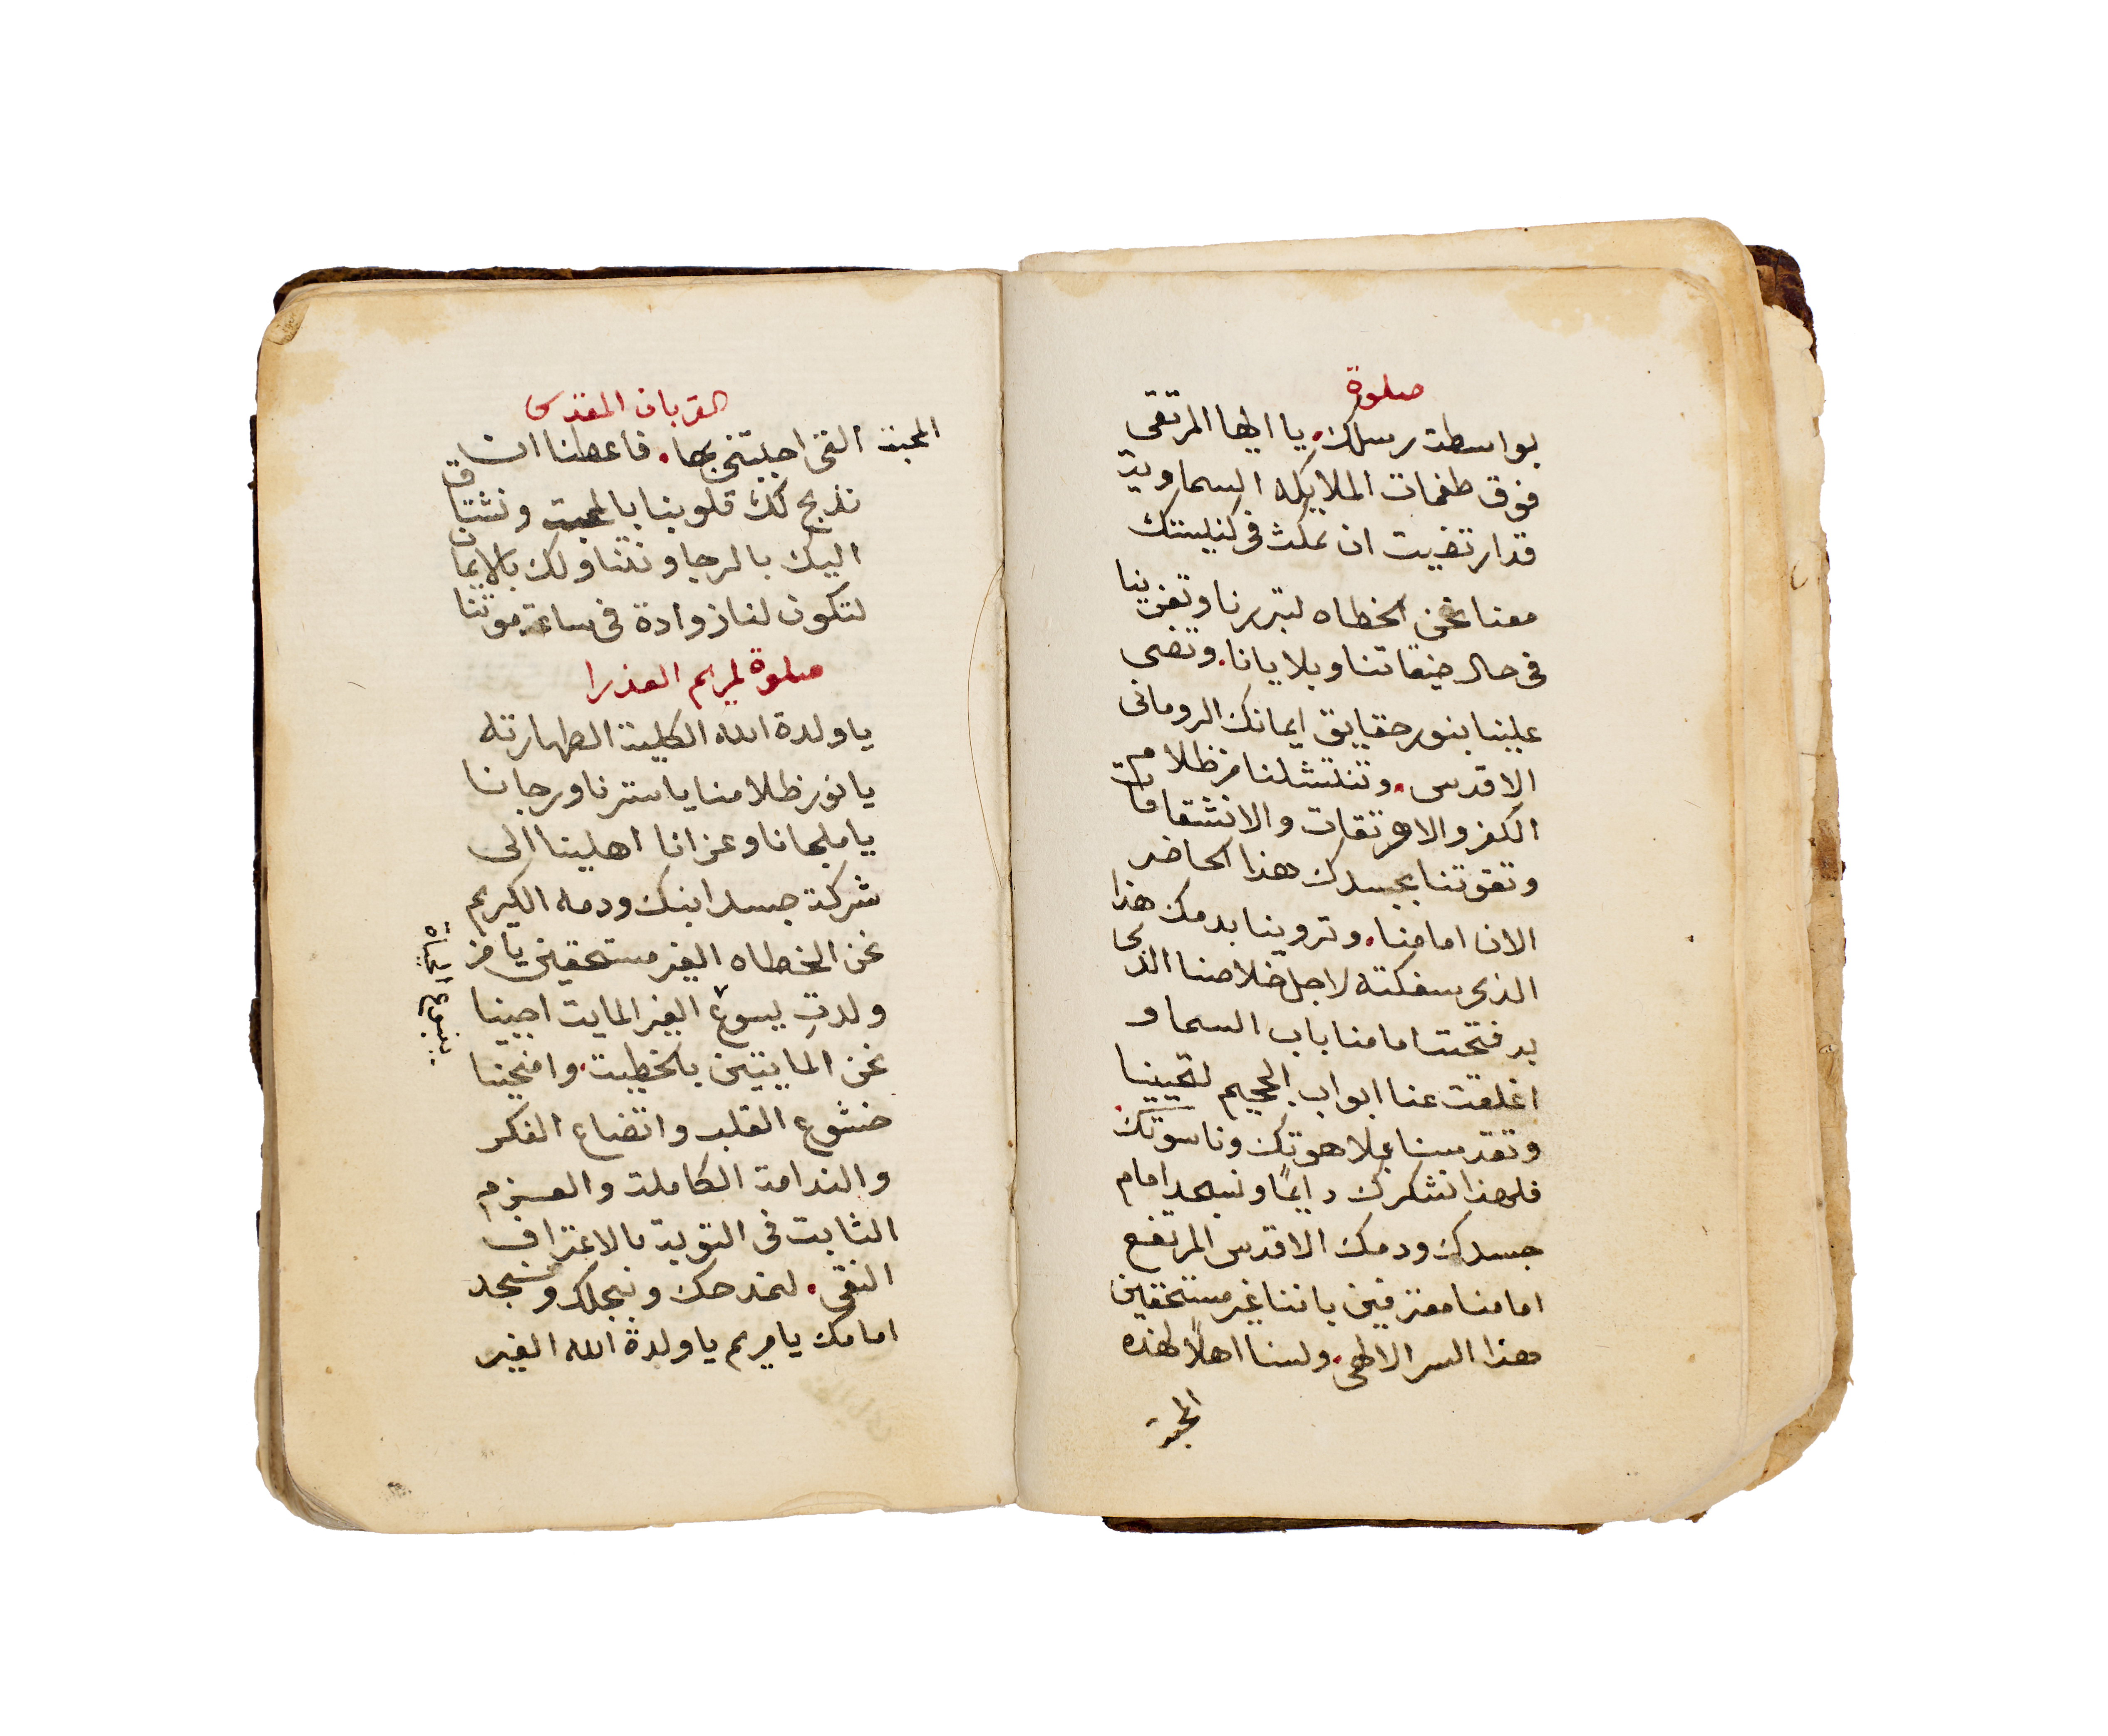 صلوة
بواسطة رسلك. يا ايها المرتقى
فوق طغمات الملايكه السماوية
قد ارتضيت ان تمكث فى كنيستك
معنا نحن الخطاه لتبررنا وتعزينا
فى حال ضيقاتنا وبلايانا. وتضى
علينا بنور حقايق ايمانك الرومانى
الاقدس. وتنتشلنا من ظلام
الكفر والاهرتقات والانشقاقات
وتقوتنا بجسدك هذا الحاضر
الان امامنا. وتروينا بدمك هذا
الذى سفكته لاجل خلاصنا الذى
به فتحت امامنا باب السما و
اغلقت عنا ابواب الجحيم لتحيينا
وتقدسنا بلاهوتك وناسوتك.
فلهذا نشكرك دايمًا ونسجد امام
جسدك ودمك الاقدس المرتفع
امامنا معترفين باننا غير مستحقين
هذا السر الالهى. ولسنا اهلاً لهذه
المحبة
القربان المقدس
المحبة التى احببتنى بها. فاعطنا ان
نذبح لك قلوبنا بالمحبة ونشتاق
اليك بالرجا ونتناولك بالايمان
لتكون لنا زوادة فى ساعة موتنا
صلوة لمريم العذرا
يا ولدة الله الكلية الطهارته
يا نور ظلامنا يا سترنا ورجانا
يا ملجانا وعزانا اهلينا الى
شركة جسد ابنك ودمه الكريم
نحن الخطاه الغير مستحقين يا من
ولدتِ يسوع الغير المايت احيينا
نحن المايتين بالخطية. وامنحينا
خشوع القلب واتضاع الفكر
والندامة الكاملة والعزم
الثابت فى التوبة بالاعتراف
النقى. لنمدحك ونبجلك ونسجد
امامك يا مريم يا ولدة الله الغير
ينبوع الحياة